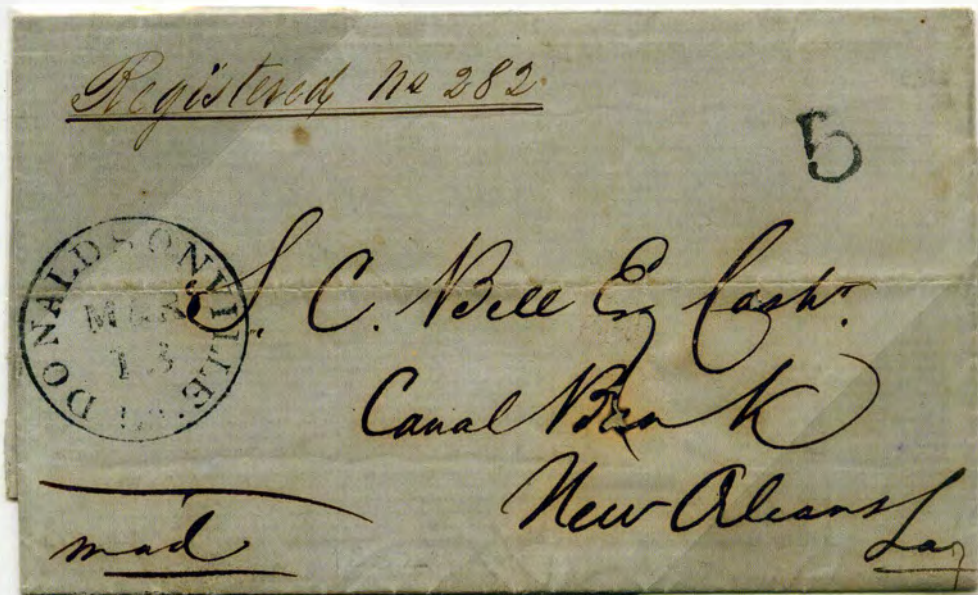 Registered No 282
5
DONALDSONVILLE
MAR
13
S. C. Bell Esq Cashr.
Canal Bank
New Orleans
La